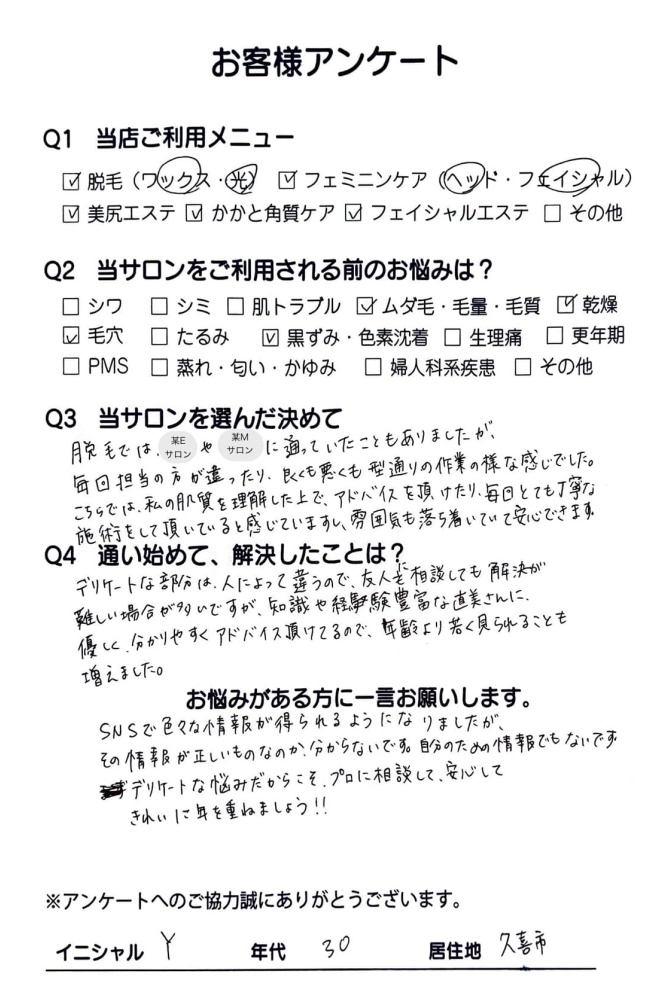 お客様アンケート
Q1 当店ご利用メニュー
☑ 脱毛（ワックス・光） ☑ フェミニンケア（ヘッド・フェイシャル）
☑ 美尻エステ ☑ かかと角質ケア ☑ フェイシャルエステ □ その他
Q2 当サロンをご利用される前のお悩みは？
□ シワ □ シミ □ 肌トラブル ☑ ムダ毛・毛量・毛質 ☑ 乾燥
☑ 毛穴 □ たるみ ☑ 黒ずみ・色素沈着 □ 生理痛 □ 更年期
□ PMS □ 蒸れ・匂い・かゆみ □ 婦人科系疾患 □ その他
Q3 当サロンを選んだ決めて
脱毛では、某Eサロンや某Mサロンに通っていたこともありましたが、
毎回担当の方が違ったり、良くも悪くも型通りの作業の様な感じでした。
こちらでは、私の肌質を理解した上で、アドバイスを頂けたり、毎日とても丁寧な
施術をして頂いていると感じていますし、雰囲気も落ち着いていて安心できます
Q4 通い始めて、解決したことは？
デリケートな部分は、人によって違うので、友人に相談しても解決が
難しい場合が多いですが、知識や経験豊富な直美さんに、
優しく、分かりやすくアドバイス頂けてるので、年齢より若く見られることも
増えました。
お悩みがある方に一言お願いします。
SNSで色々な情報が得られるようになりましたが、
その情報が正しいものなのか、分からないです。自分のための情報でもないです
デリケートな悩みだからこそ、プロに相談して、安心して
きれいに年を重ねましょう!!
※アンケートへのご協力誠にありがとうございます。
イニシャル Y 年代 30 居住地 久喜市